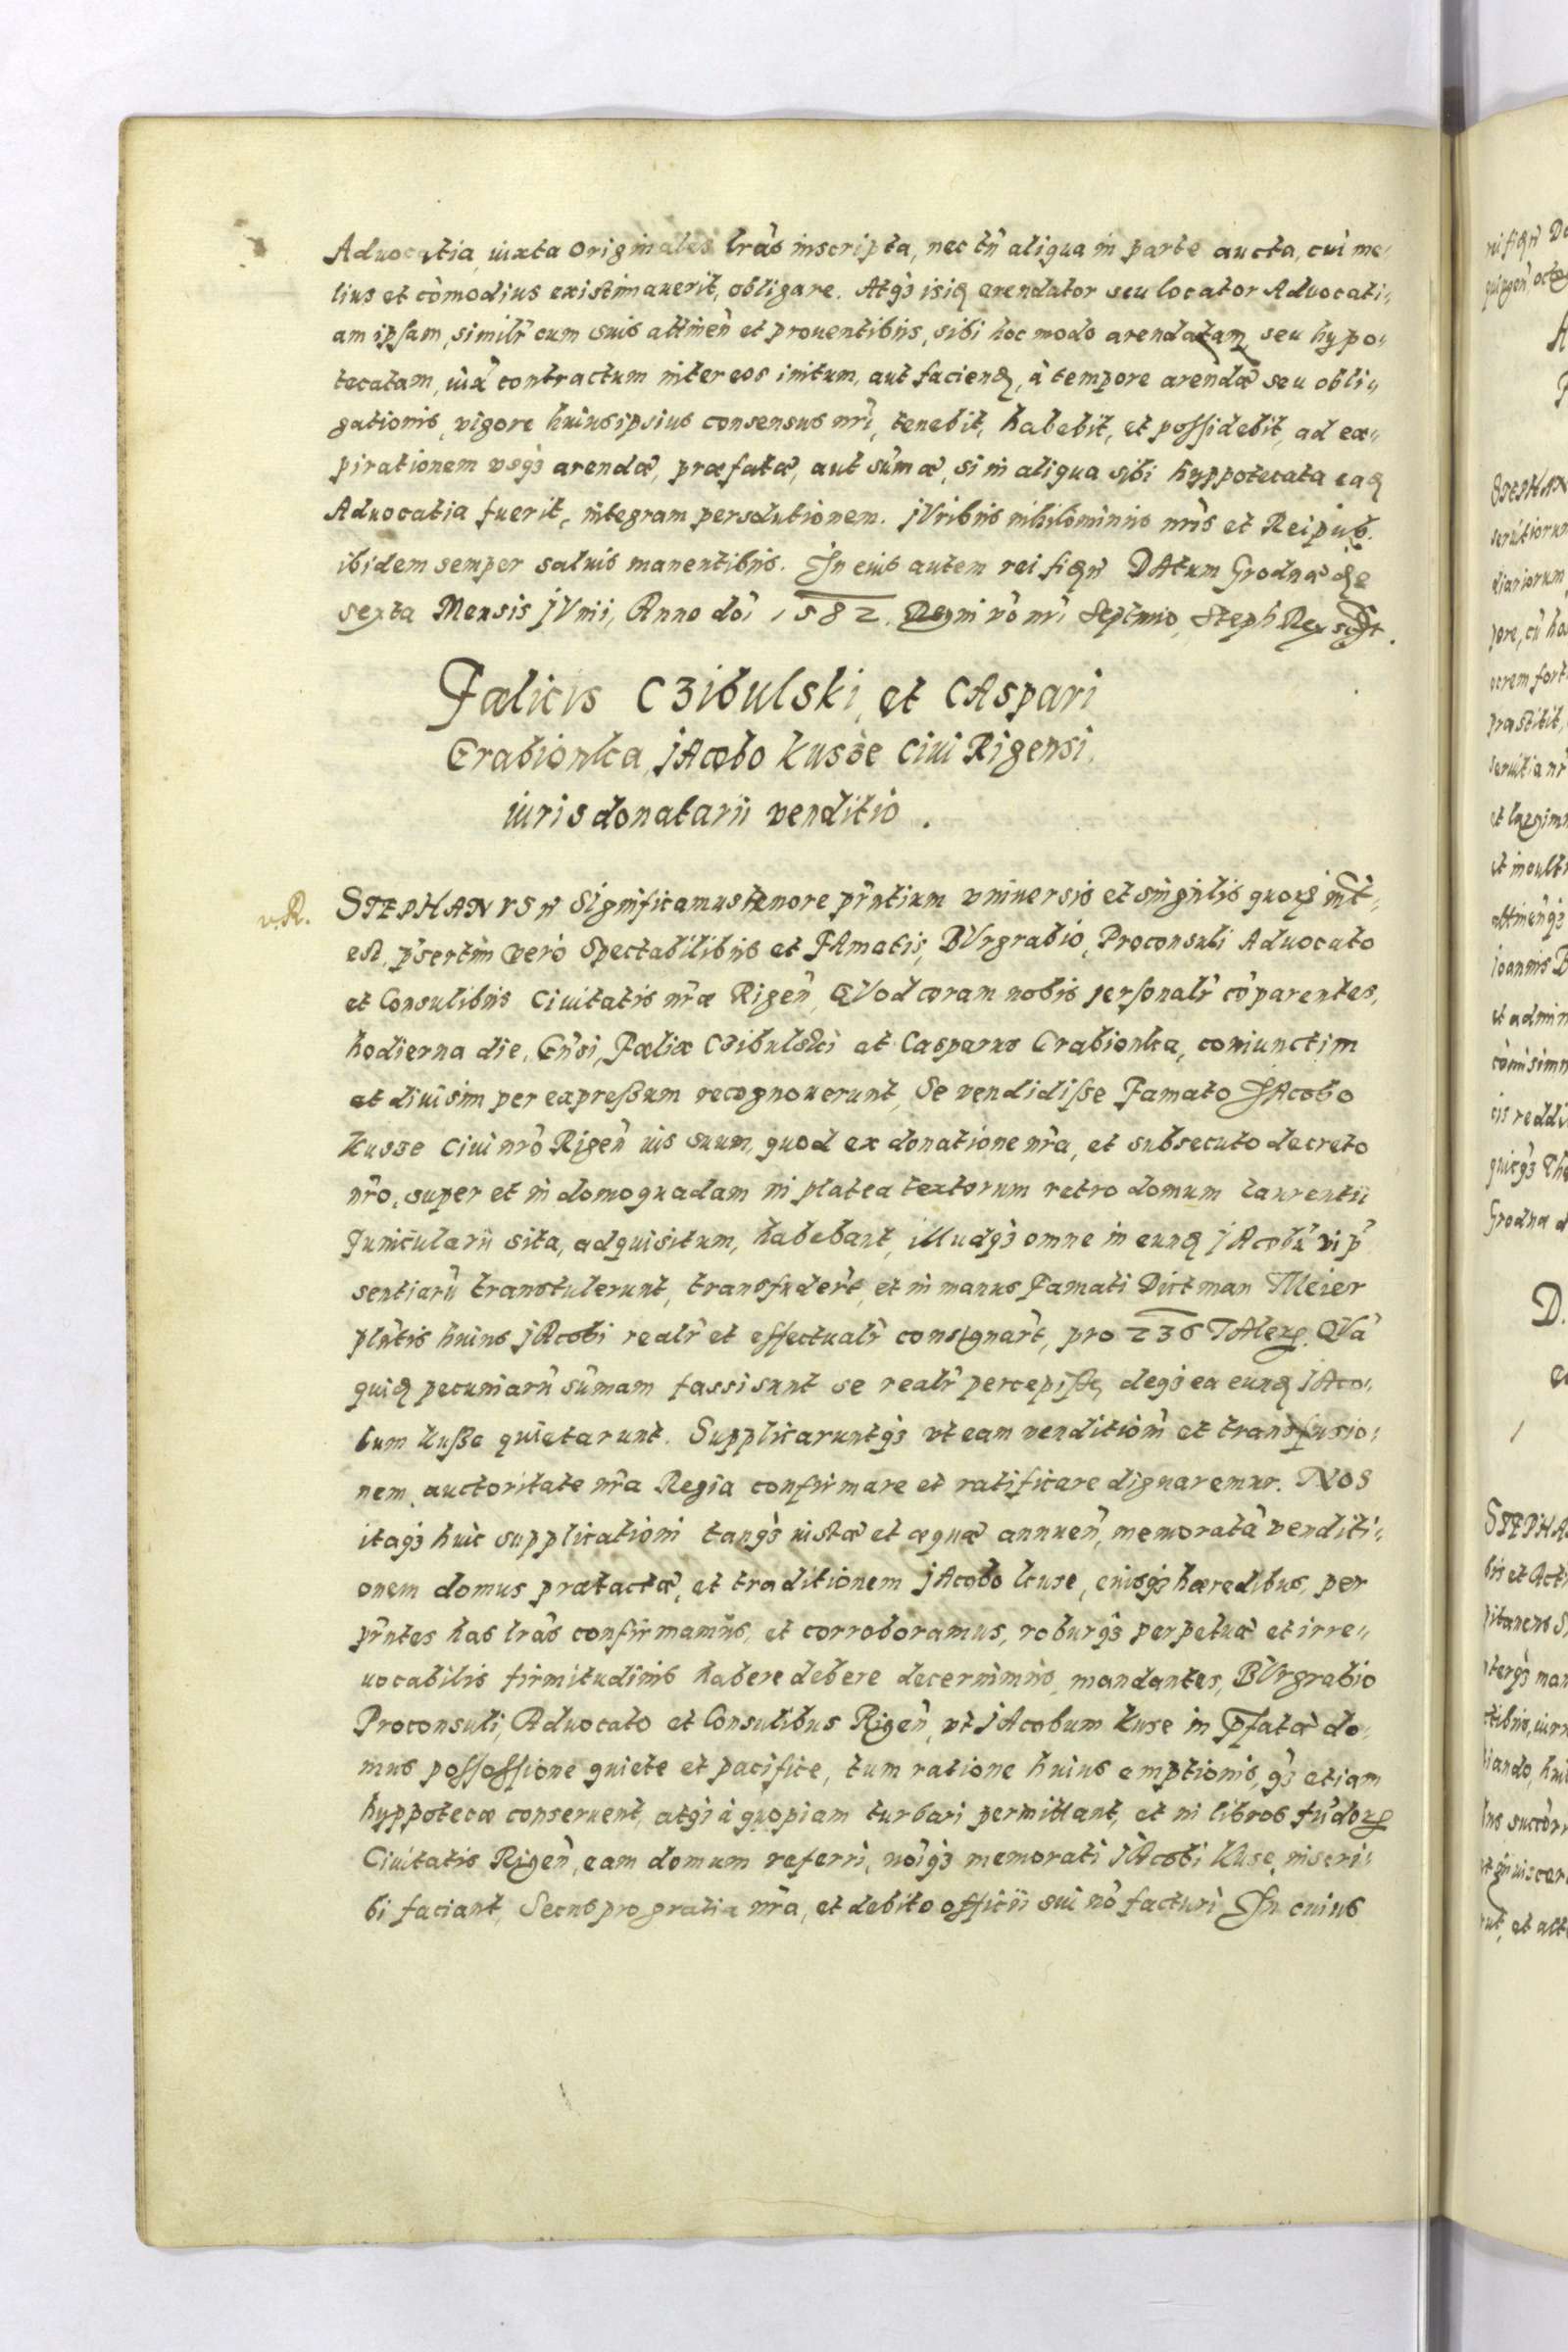 Aduocatia, iuxta originales lr̃as inscripta, nec tñ aliqua in parte aucta, cui me„
lius et cõmodius existimauerit, obligare. Atq₃ isiꝗ arendator seu locator Aduocati„
am ipsam, similr̃ cum suis attineñ et prouentibus, sibi hoc modo arendatam, seu hypo„
tecatam, iux̃ contractum inter eos initum, aut faciendꝗ, à tempore arendæ seu obli„
gationis, vigore huius ipsius consensus nr̃i, tenebit, habebit, et possidebit, ad ex„
pirationem vsq₃ arendæ, præfatæ, aut sum̃æ, si in aliqua sibi hyppotecata eaꝗ
Aduocatia fuerit, integram persolutionem. jVribus nihilominus nr̃is et Reipub.
ibidem semper saluis manentibus. In eius autem rei fiďñ DAtum Grodnæ die
sexta Mensis jVnii, Anno dñi 1582. Regni võ nr̃i Septimo, Steph Rex sšt.
Fælicis C3ibulski, et CAspari
Grabionka, jAcobo kus3e Ciui Rigensi
iuris donatarii venditio.
v.R.
STEPHANVS ñ Significamus tenore pr̃ntium vniuersis et singulis quorꝝ int̃„
est, p̃sertim vero Spectabilibus et FAmatis, BVrgrabio, Proconsuli Aduocato
et Consulibus Ciuitatis nr̃æ Rigeñ, QVod coram nobis personalr̃ cõparentes,
hodierna die, Gñsi, Fælix C3ibulski et Casparus Grabionka, coniunctim
et diuisim per expreßum recognouerunt, Se vendidisse Famato JAcobo
kusse Ciui nr̃o Rigeñ ius suum, quod ex donatione nr̃a, et subsecuto decreto
nr̃o, super et in domo quadam in platea textorum retro domum Laurentii
Funicularii sita, adquisitum, habebant, illudq₃ omne in eunꝗ jAcobũ in p̃
sentiarũ transtulerunt, transfuder̃t, et in manus Famati Dictman Meier
plñtis huius jAcobi realr̃ et effectualr̃ consignar̃t, pro 236 TAlerꝝ. QVã
quiꝗ pecuniarũ sum̃am fassi sunt se realr̃ percepisse, deq₃ ea eunꝗ jAco„
bum kuße quietarunt. Supplicaruntq₃ vt eam venditionẽ et transfusio„
nem, auctoritate nr̃a Regia confirmare et ratificare dignaremur. NOS
itaq₃ huic supplicationi tanq₃ iustæ et æquæ annueñ, memoratã venditi„
onem domus prætactæ, et traditionem jAcobo kuse, eiusq₃ hæredibus, per
pr̃ntes has lr̃as confirmamus, et corroboramus, roburq₃ perpetuæ et irre„
uocabilis firmitudinis habere debere decernimus, mandantes, BVrgrabio
Proconsuli, Aduocato et Consulibus Rigeñ, vt jAcobum kuse in p̃fatæ do„
mus possessione quiete et pacifice, tum ratione huius emptionis, q₃ etiam
hyppotecæ conseruent, atq₃ à quopiam turbari permittant, et in libros fũdorꝝ
Ciuitatis Rigeñ, eam domum referri, nõiq₃ memorati jAcobi kuse, inscri„
bi faciant, Secus pro gratia nr̃a, et debito officii sui nõ facturi In cuius